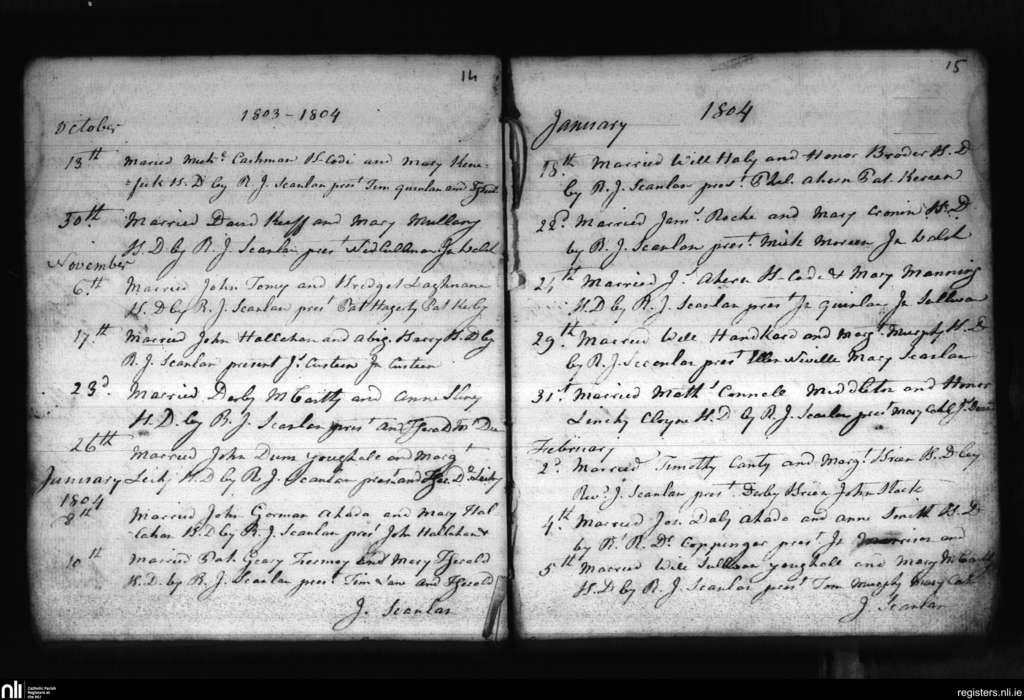 14
1803-1804
October
13th Maried Mich.l Cashman H Code and Mary
H.D by R. J. Scanlan prest. Tim Quinlan and
30th Married David Keeff and Mary Mullany
H.D by R J. Scanlan prest. Jn Walsh
November
6th Married John Tomy and Bredget Laghnane
H.D by R. J. Scanlan prest Pat Hagerty Pat
17.th Married John Hallahan and Abig. Barry H.D by
R. J. Scanlan present Js. Custeen Jn Custeen
23d. Married Darby McCartly and Anne
H.D. by R. J. Scanlan prest
26th Married John Dum Youghale and Margt
H.D by R J. Scanlan prest and
January
1804
8th Married John Gorman Ahada and Mary Hal
lahan H.D by R. J. Scanlan prest Joh Hallahan &
10th Married Pat. Geary and Mary Fgerald
H.D. by R. J. Scanlan prest. Tim and Fgerald
J. Scanlan
15
1804
January
18th. Married Will Haly and Honor Broder H.D
by R. J. Scanlan prest. Phil. Ahern Pat. Kereen
22d. Married Jams. Roche and Mary Cronin H.D
by R. J. Scanlan prest. Mick Moreen Jn Walsh
24th Married Js. Ahern H. Code & Mary Manning
H.D by R. J. Scanlan prest Jn Quinlan Jn Sullivan
29th. Married Will Handkard and Margt. Murphy H.D
by R. J. Scanlan prest Ellen Neville Mary Scanlan
31st Married Math.w Connele Middleton and Honor
Linchy Cloyne H.D by R. J. Scanlan prest Mary
February
2d. Married Timothy Canty and Mary Brien H.D by
Revd. J. Scanlan prest. Darby Brien John Slack
4.th Married Jos. Daly Ahada and Anne Smith H.D
by Rt. R. Dr. Coppenger prest. Js and
5th Married Will Sullivan Youghale and Mary McCartly
H.D by R. J. Scanlan prest Tom Murphy Mary
J. Scanlan
nli
Catholic Parish
Registers at
the NLI
registers.nli.ie